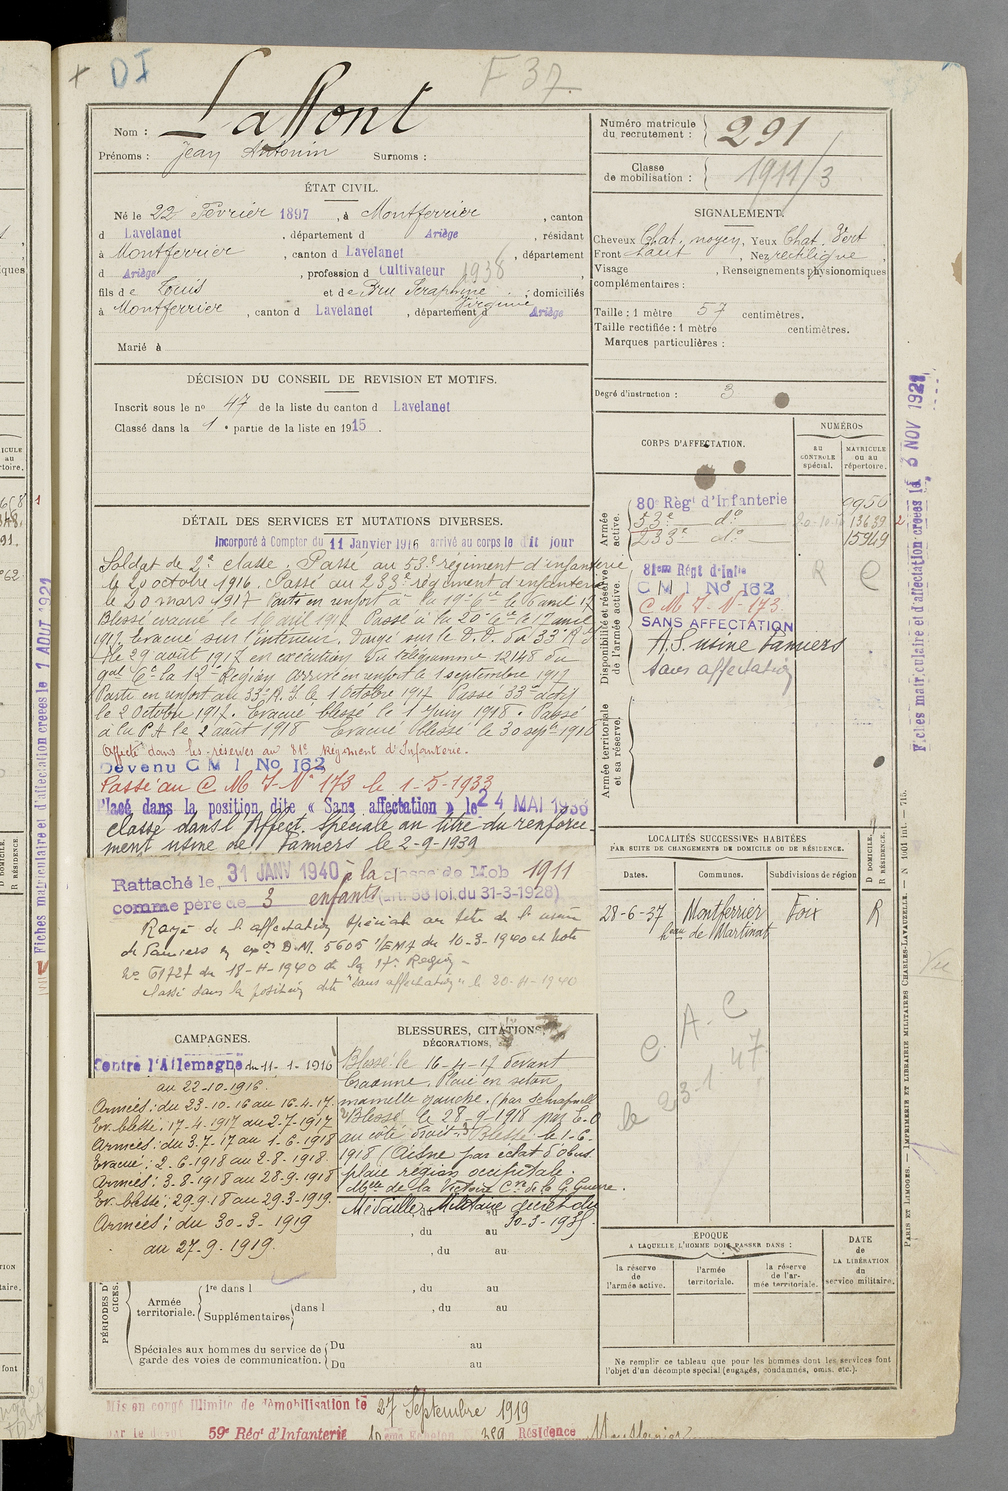 DI
F 37
Nom : Laffont
Prénoms : Jean Antonin Surnoms :
Numéro matricule du recrutement : 291
Classe de mobilisation : 1911/3
ÉTAT CIVIL.
Né le 22 Février 1897, à Montferrier, canton
d Lavelanet, département d Ariège, résidant
à Montferrier, canton d Lavelanet, département
d Ariège, profession d Cultivateur 1938
fils de Louis et de Bru Seraphine Virginie, domiciliés
à Montferrier, canton d Lavelanet, département d Ariège
Marié à
SIGNALEMENT.
Cheveux Chat. noyen, Yeux Chat. Vert,
Front haut, Nez rectiligne,
Visage , Renseignements physionomiques
complémentaires :
Taille : 1 mètre 57 centimètres.
Taille rectifiée : 1 mètre centimètres.
Marques particulières :
Degré d'instruction : 3
DÉCISION DU CONSEIL DE REVISION ET MOTIFS.
Inscrit sous le no 47 de la liste du canton d Lavelanet
Classé dans la 1e partie de la liste en 1915.
CORPS D'AFFECTATION.
NUMÉROS
AU CONTRÔLE spécial.
MATRICULE OU AU répertoire.
Armée active.
80 Régt d'Infanterie 9956
53e do 13639
233e do 15949
Disponibilité et réserve de l'armée active.
81em Régt d'Infie R C
C M I No 162
C. M. I. No 173.
SANS AFFECTATION
A. S. usine Pamiers
Sans affectation
Armée territoriale et sa réserve.
DÉTAIL DES SERVICES ET MUTATIONS DIVERSES.
Incorporé à Compter du 11 Janvier 1916 arrivé au corps le dit jour
Soldat de 2e classe. Passé au 53e régiment d'infanterie
le 20 octobre 1916. Passé au 233e régiment d'infanterie
le 20 mars 1917 Parti en renfort à la 19e Cie le 6 avril 17
Blessé évacué le 16 avril 1917 Passé à la 20e Cie le 17 avril
1917. Evacué sur l'intérieur. Dirigé sur le D.D. du 33e R I
le 29 août 1917 en exécution du télégramme 12148 du
gal Ct la 12e Région Arrivé en renfort le 1 septembre 1917
Parti en renfort au 33e R. I le 1 Octobre 1917 Passé 33e actif
le 2 Octobre 1917. Evacué blessé le 1 Juin 1918. Passé
à la P.A le 2 août 1918 Evacué blessé le 30 septe 1918
Affecté dans les réserves au 81e Régiment d'Infanterie.
Devenu C M I No 162
Passé au C M I No 173 le 1-5-1933
Placé dans la position dite « Sans affectation » le 24 MAI 1933
classé dans l'Affect. Spéciale au titre du renforce-
ment usine de Pamiers le 2-9-1939
Rattaché le 31 JANV 1940 à la classe de Mob 1911
comme père de 3 enfants (art. 58 loi du 31-3-1928)
Rayé de l'affectation spéciale au titre de l'usine
de Pamiers en exon D.M. 5605 1/EMA du 10-3-1940 et note
no 6172 du 18-11-1940 de la 17e Région -
Classé dans la position dite "sans affectation" le 20-11-1940
LOCALITÉS SUCCESSIVES HABITÉES
PAR SUITE DE CHANGEMENTS DE DOMICILE OU DE RÉSIDENCE.
Dates. Communes. Subdivisions de région
D DOMICILE. R RÉSIDENCE.
28-6-37 Montferrier Foix R
heau de Martinat
C. A. C
le 23-1-47
CAMPAGNES.
Contre l'Allemagne du 11-1-1916
au 22-10-1916.
Armées : du 23-10-16 au 16-4-17.
Ev. blessé : 17-4-1917 au 2-7-1917
Armées : du 3-7-17 au 1-6-1918
Evacué : 2-6-1918 au 2-8-1918.
Armées : 3-8-1918 au 28-9-1918
Ev. blessé : 29-9-18 au 29-3-1919.
Armées : du 30-3-1919
au 27-9-1919.
BLESSURES, CITATIONS, DÉCORATIONS,
Blessé le 16-4-17 devant
Craonne. Plaie en séton
mamelle gauche. (par Schrapnell
2e Blessé le 28-9-1918 par E.O
au côté droit. 3e Blessé le 1-6-
1918 (Aisne par éclat d'obus
plaie région occipitale.
Mlle de la Victoire Cve de la Gde Guerre.
Médaille Militaire décret du
30-3-1935
, du au
, du au
, du au
PÉRIODES D'EXERCICES.
Armée territoriale.
1re dans l , du au
Supplémentaires dans l , du au
Spéciales aux hommes du service de garde des voies de communication.
Du au
Du au
ÉPOQUE
A LAQUELLE L'HOMME DOIT PASSER DANS :
la réserve de l'armée active.
l'armée territoriale.
la réserve de l'armée territoriale.
DATE de LA LIBÉRATION du service militaire.
Ne remplir ce tableau que pour les hommes dont les services font
l'objet d'un décompte spécial (engagés, condamnés, omis, etc.).
Mis en congé illimité de démobilisation le 27 Septembre 1919
59e Régt d'Infanterie Résidence
Fiches matriculaire et d'affectation créées le 3 NOV 1921
Fiches matriculaire et d'affectation créées le 1 AOUT 1921
PARIS ET LIMOGES. — IMPRIMERIE ET LIBRAIRIE MILITAIRES CHARLES-LAVAUZELLE.
Vu